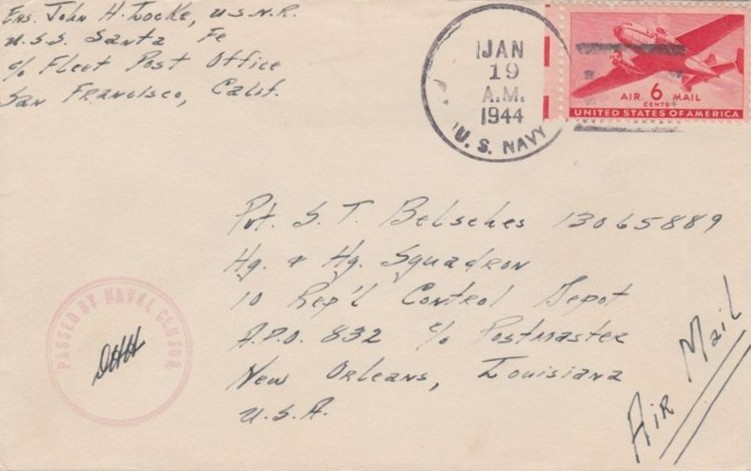 Ens. John H. Locke, U.S.N.R.
U.S.S. Santa Fe
c/o Fleet Post Office
San Francisco, Calif.
JAN
19
A.M.
1944
U.S. NAVY
AIR 6 MAIL
CENTS
UNITED STATES OF AMERICA
Pvt. S. T. Belsches 13065889
Hq. & Hq. Squadron
10 Rep'l Control Depot
A.P.O. 832 c/o Postmaster
New Orleans, Louisiana
U.S.A.
Air Mail
PASSED BY NAVAL CENSOR
DHH